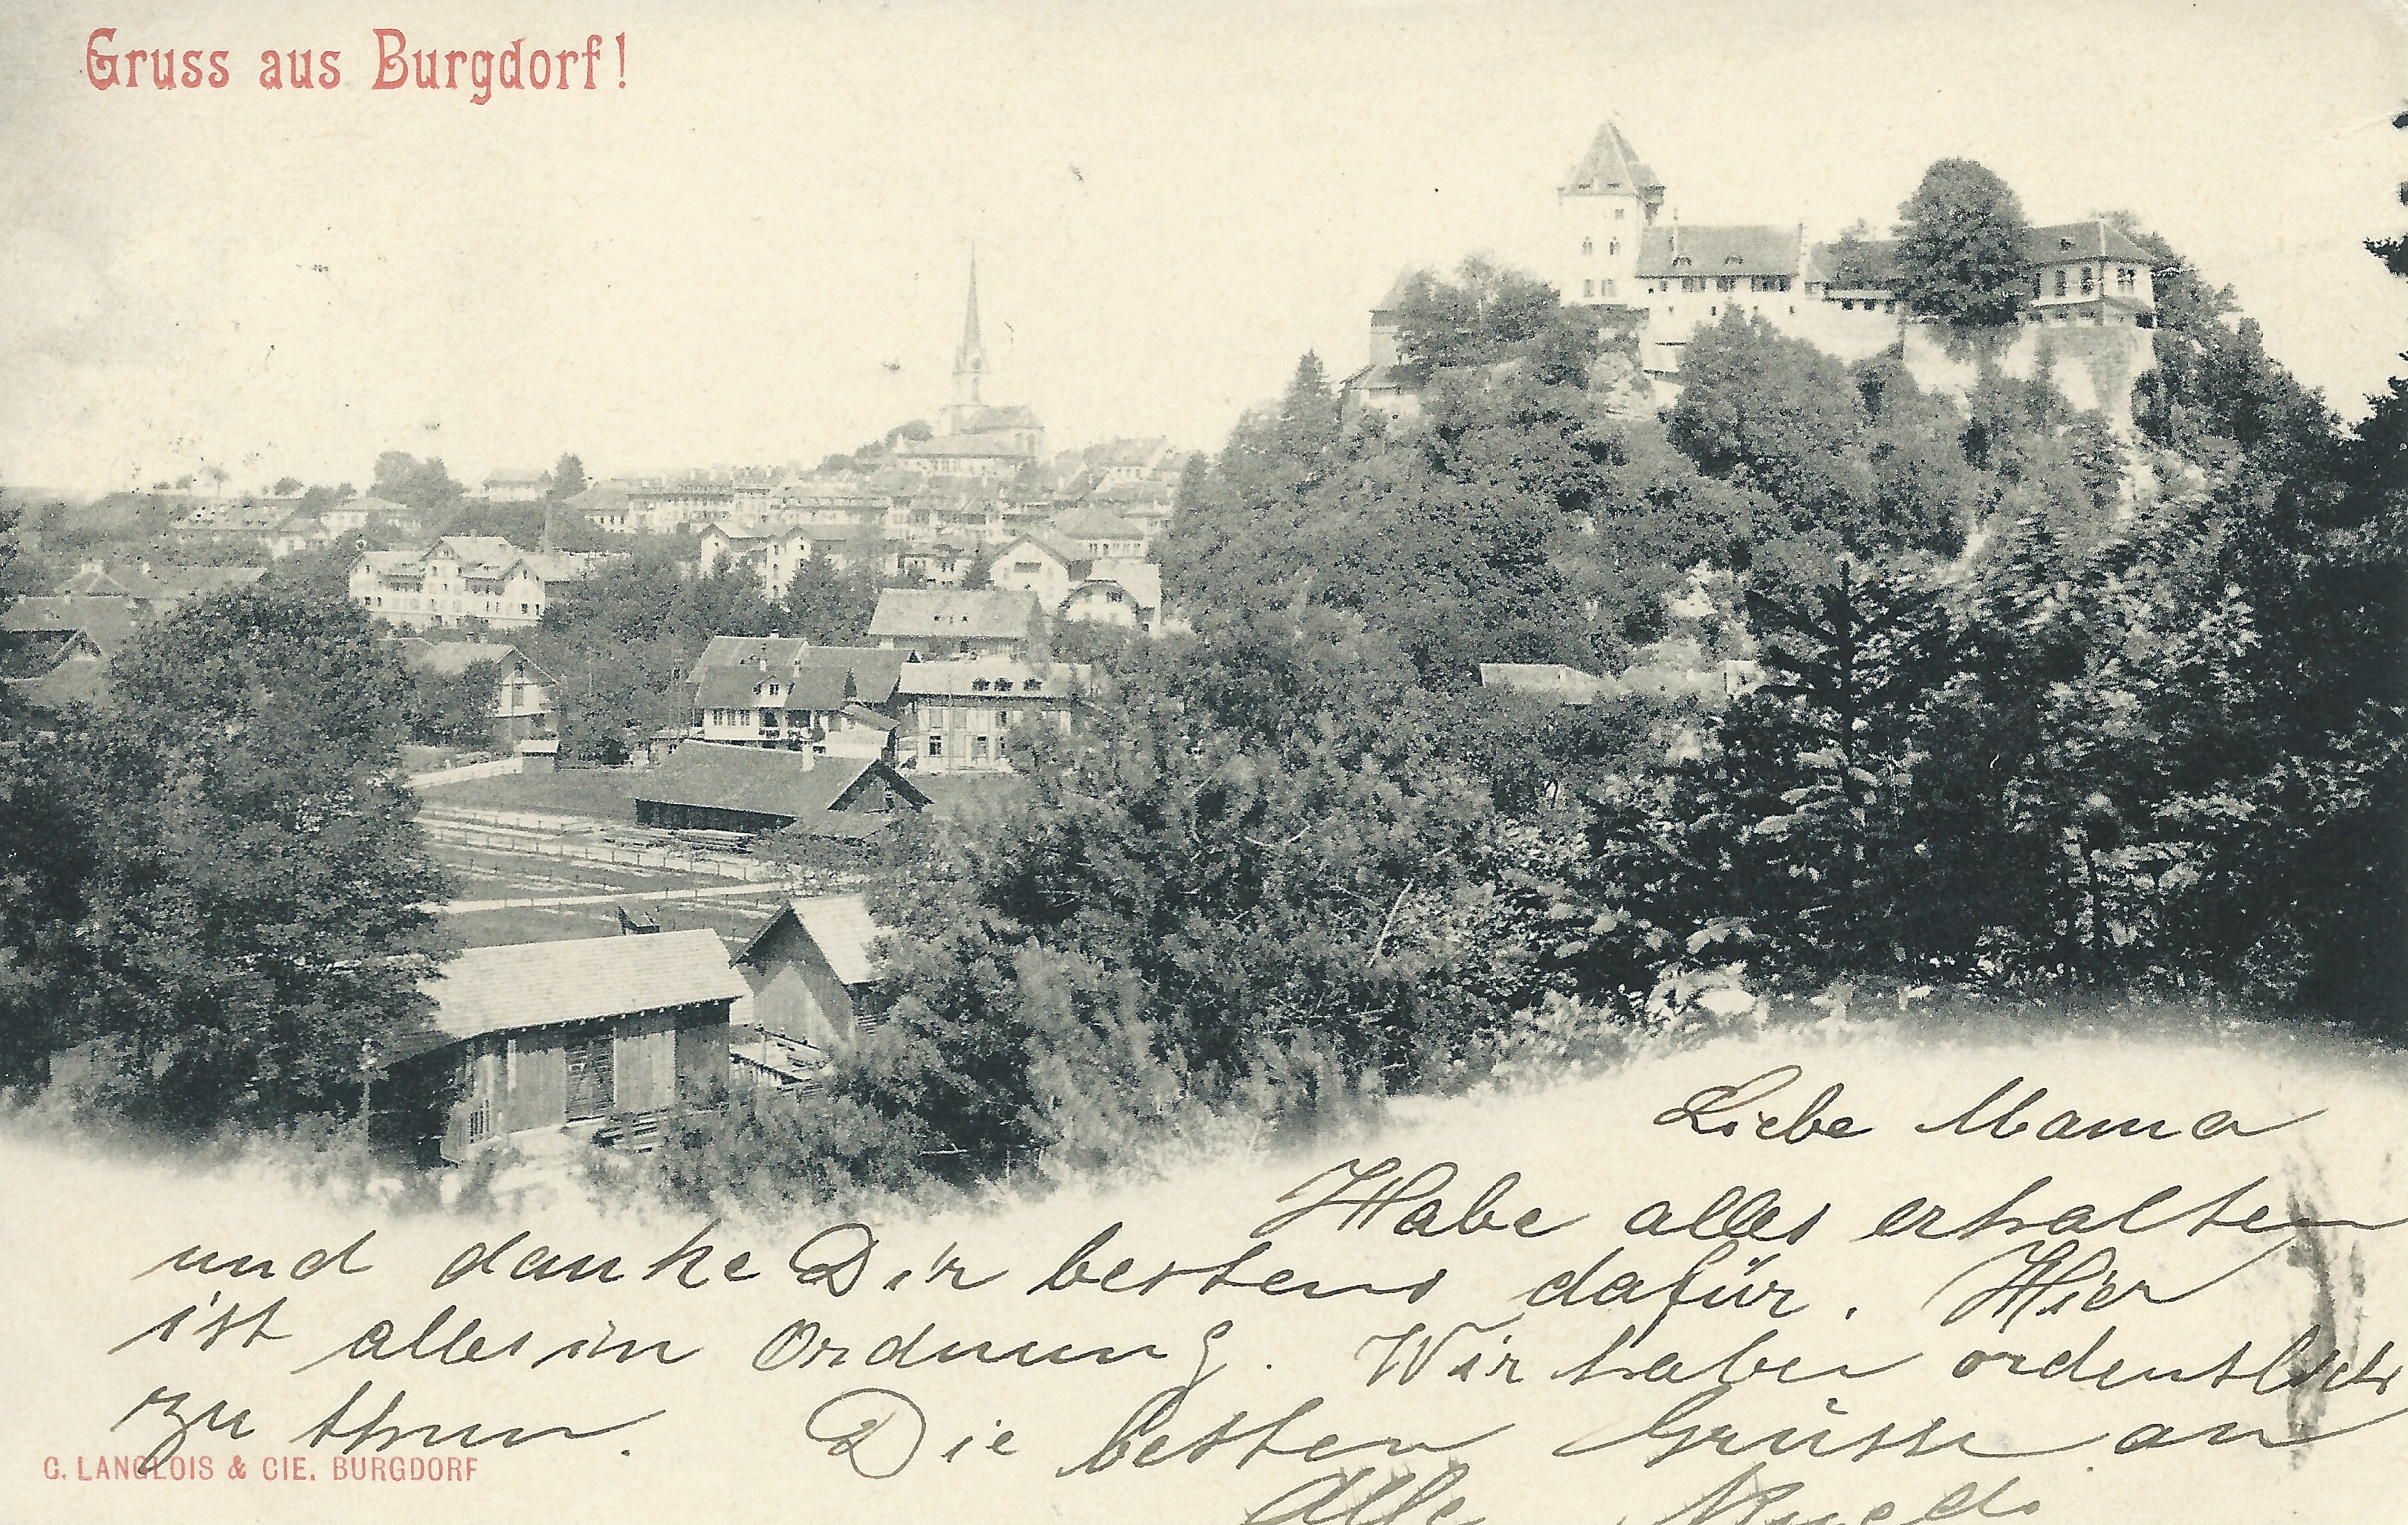 Gruss aus Burgdorf!
Liebe Mama
Habe alles erhalten
und danke Dir bestens dafür. Hier
ist alles in Ordnung. Wir haben ordentlich
zu thun. Die besten Grüsse an
Alle Ruedi
C. LANGLOIS & CIE. BURGDORF